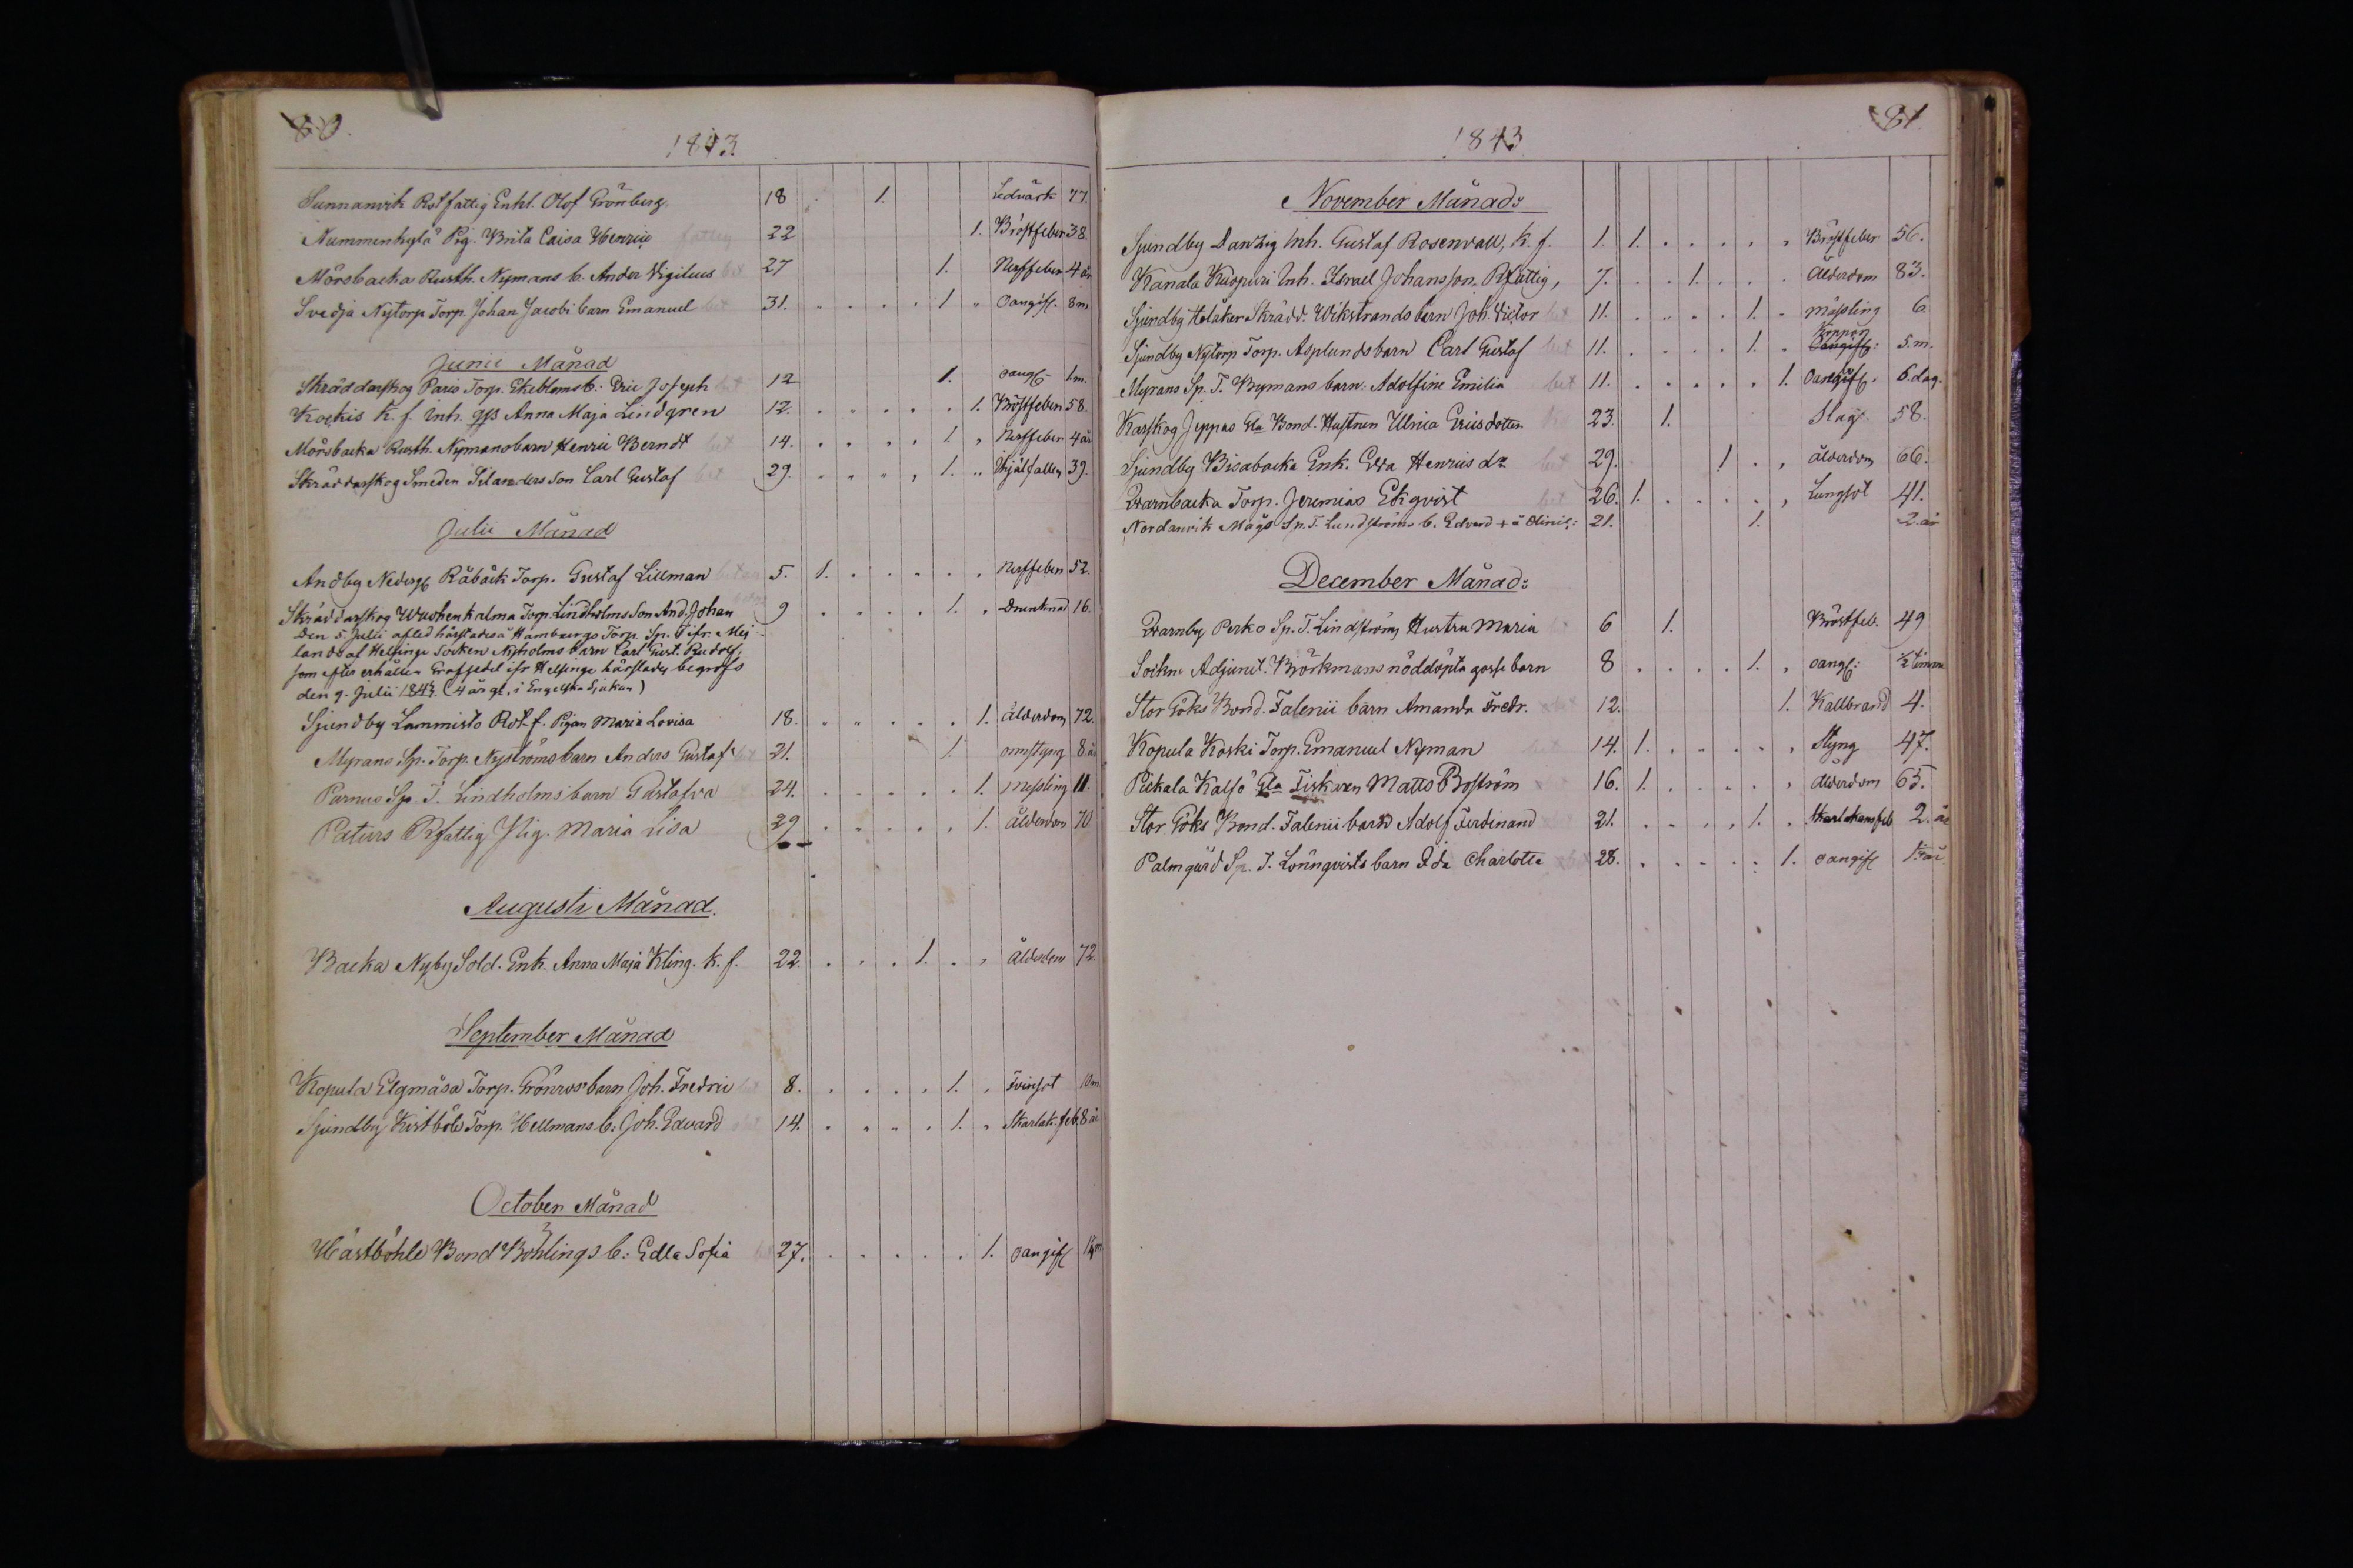 80.
1843
Sunnanvik Rotfattig Enkl. Olof Grönberg 18 1. Ledvärk 77.
Nummenkylä Pig. Brita Caisa Henric fattig 22 1. Bröstfeber 38.
Mörsbacka Rusth. Nymans b. Ander Vigilius bet 27 1. Nerffeber 4 år
Svedja Nytorp Torp. Johan Jacobi barn Emanuel bet 31. 1 oangif. 8 m
Junii Månad
Skräddarskog Pavis Torp. Ekebloms b: Eric Joseph bet 12 1. oangf 1 m.
Kockis K. f. Inh. Anna Maja Lindgren 12. 1. Bröstfeber 58.
Mörsbacka Rusth. Nymans barn Henric Berndt bet 14. 1. Nerffeber 4 år
Skräddarskog Smeden Silanders Son Carl Gustaf bet 29. 1. Ihjälfallen 39.
Julii Månad
Andby Nederg Råbäck Torp. Gustaf Lillman 5. 1. Nerffeber 52.
Skräddarskog Wuohenkalma Torp. Lindholms Son And. Johan 9 1. Drunknad 16.
Den 5. Julii afled härstädes å Hamburgs Torp. Sp. T. ifr. Mej-
lands af Helsinge Socken Nyholms barn Carl Gust. Rudolf,
som efter erhållen Graffsedel ifr Helsinge härstädes begrofs
den 9. Julii 1843. (4 år gl, i Engelska Sjukan)
Sjundby Lammisto Rot. f. Pigan Maria Lovisa 18. 1. Ålderdom 72.
Myrans Sp. Torp. Nyströms barn Anders Gustaf bet 21. 1. 8 år
Parnus Sp. T. Lindholms barn Gustafva 24. 1. Messling 11.
Paturs Rfattig Pig. Maria Lisa 29 1. Ålderdom 70
Augusti Månad.
Backa Nyby Sold. Enk. Anna Maja Kling. K. f. 22. 1. Ålderdom 72.
September Månad
Kopula Elgmåsa Torp. Grönros barn Joh. Fredric bet 8. 1. Tvinsot 10 m
Sjundby Kistböle Torp. Hellmans b: Joh. Edvard bet 14. 1. Skarlak. feb. 8 år
October Månad
Hästböhle Bond Böhlings b: Edla Sofia 27. 1. oangif
81.
1843
November Månad:
Sjundby Danzig Inh. Gustaf Rosenvall, K. f. 1. 1. Bröstfeber 56.
Kanala Kuspuri Inh. Israel Johansson Rfattig, 7. 1. Ålderdom 83.
Sjundby Holåker Skrädd. Wikstrands barn Joh. Victor bet 11. 1. Mässling 6
Sjundby Nytorp Torp. Asplunds barn Carl Gustaf bet 11. 1. Koppor Oangif: 5. m.
Myrans Sp. T. Bymans barn: Adolfine Emilia bet 11. 1. Oangif. 6. dag.
Karskog Jeppas Gla Bond. Hustrun Ulrica Ericsdotter 23. 1. Slag. 58.
Sjundby Bisabacka Enk. Edla Henrics dr. bet 29. 1 ålderdom 66.
Qvarnbacka Torp. Jeremias Ekqvist bet 26. 1. Lungsot 41.
Nordanvik Mågs Sp. T. Lundströms b. Edvard + å 21. 1. 2 år
December Månad:
Qvarnby Perko Sp. T. Lindströms Hustru Maria 6 1. Bröstfeb. 49
Sockne Adjunct. Björkmans nöddöpta gosse barn 8 1. oangf: ½ timme
Stor Göks Bond. Falenii barn Amanda Fredr. bet 12. 1. Kallbrand 4.
Kopula Koski Torp. Emanuel Nyman bet 14. 1. Styng 47.
Pickala Kalsö Gla Fiskaren Matts Boström 16. 1. Ålderdom 65.
Stor Göks Bond. Falenii barn Adolf Ferdinand 21. 1. Skarlakansfeb 2. år
Palmgård Sp. T. Lönnqvists barn Ida Charlotta bet 28. 1. oangif